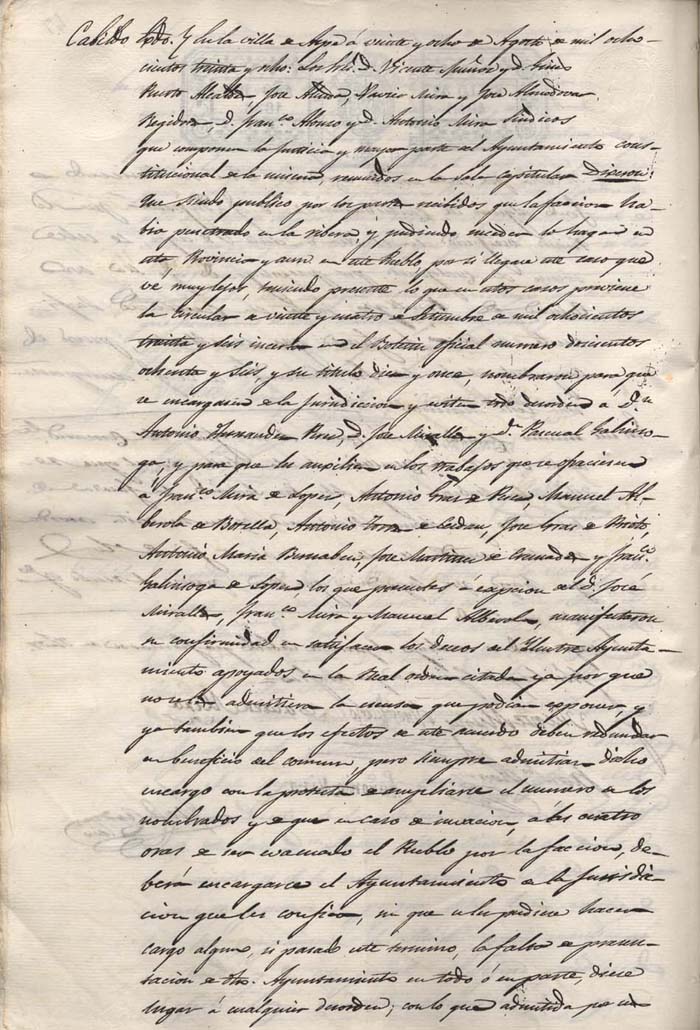 Cabildo hdo. Y en la villa de Aspe á veinte y ocho de Agosto de mil ocho-
cientos treinta y ocho: Los Sres. D. Vicente Muñoz y D. Ginés
Puerto Alcaldes, José Alcaraz, Xavier Mira y José Almodovar
Regidores, D. Franco. Alonso y D. Antonio Mira Sindicos
que componen la Justicia y mayor parte del Ayuntamiento cons-
titucional de la misma, reunidos en la Sala capitular Dijeron:
Que siendo publico por los partes recibidos que la faccion ha-
bia penetrado en la ribera, y pudiendo suceder lo haga en
esta Provincia y aun en este Pueblo, por si llegare este caso que
ve muy lejos, teniendo presente lo que en estos casos previene
la circular de veinte y cuatro de Setiembre de mil ochocientos
treinta y seis incerta en el Boletin oficial numero doscientos
ochenta y seis, y su titulo diez y once, nombraron para que
se encargasen de la Jurisdiccion y eviten todo desorden á Dn.
Antonio Fernandez Pere, D. José Miralles y Dn. Pascual Galinso-
ga, y para que les auxilien en los trabajos que se ofrecieren
á Franco. Mira de Loper, Antonio Gras de Pere, Manuel Al-
berola de Botella, Antonio, José Gras de
Antonio Maria Bernabeu, José Martinez de y Franco.
Galinsoga de Loper, los que presentes á esepcion del D. José
Miralles, Franco. Mira y Manuel Alberola, manifestaron
su conformidad en satisfacer los deseos del Ilustre Ayunta-
miento apoyados en la Real orden citada ya por que
no será admitiera la escusa que podian esponer y
ya tambien que los efectos de este acuerdo deben redundar
en beneficio del comun, pero siempre admitian dicho
encargo con la protesta de ampliarse el numero de los
nombrados y de que en caso de invacion, á las cuatro
oras de ser evacuado el Pueblo por la faccion, de-
berá encargarse el Ayuntamiento de la jurisdic-
cion que les confia, sin que se les pudiese hacer
cargo alguno, si pasado este termino, la falta de presen-
tacion de dho. Ayuntamiento en todo ó en parte, diese
lugar á cualquier desorden; con lo que admitida por el